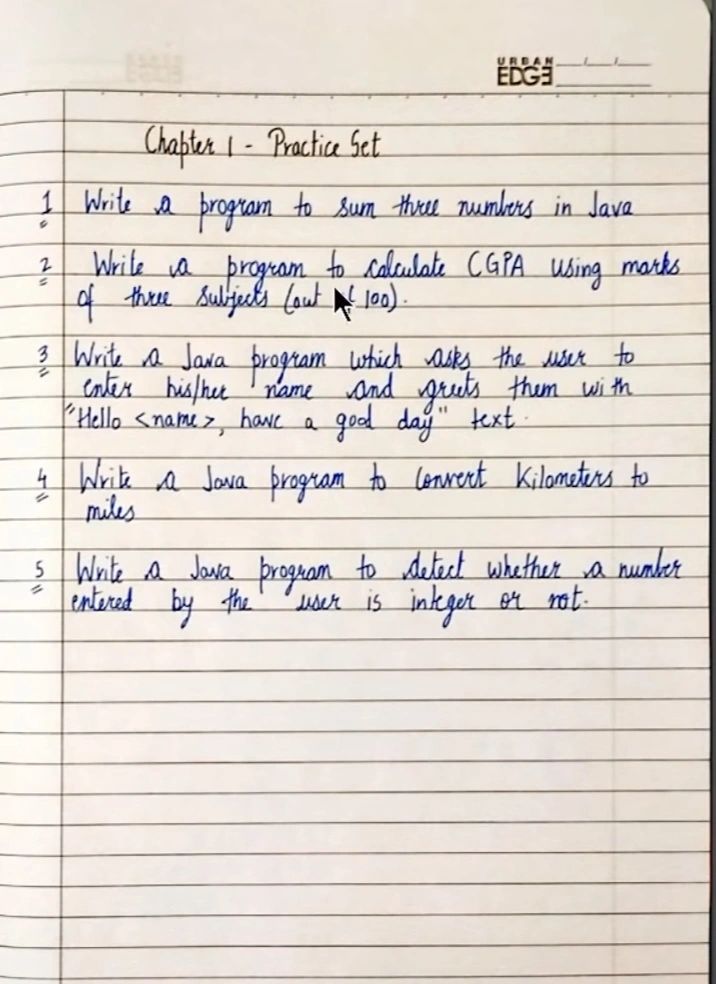 URBAN
EDGE
Chapter 1 - Practice Set
1 Write a program to sum three numbers in Java
2 Write a program to calculate CGPA using marks
of three subjects (out 100).
3 Write a Java program which asks the user to
enter his/her name and greets them with
"Hello <name>, have a good day" text.
4 Write a Java program to convert Kilometers to
miles
5 Write a Java program to detect whether a number
entered by the user is integer or not.